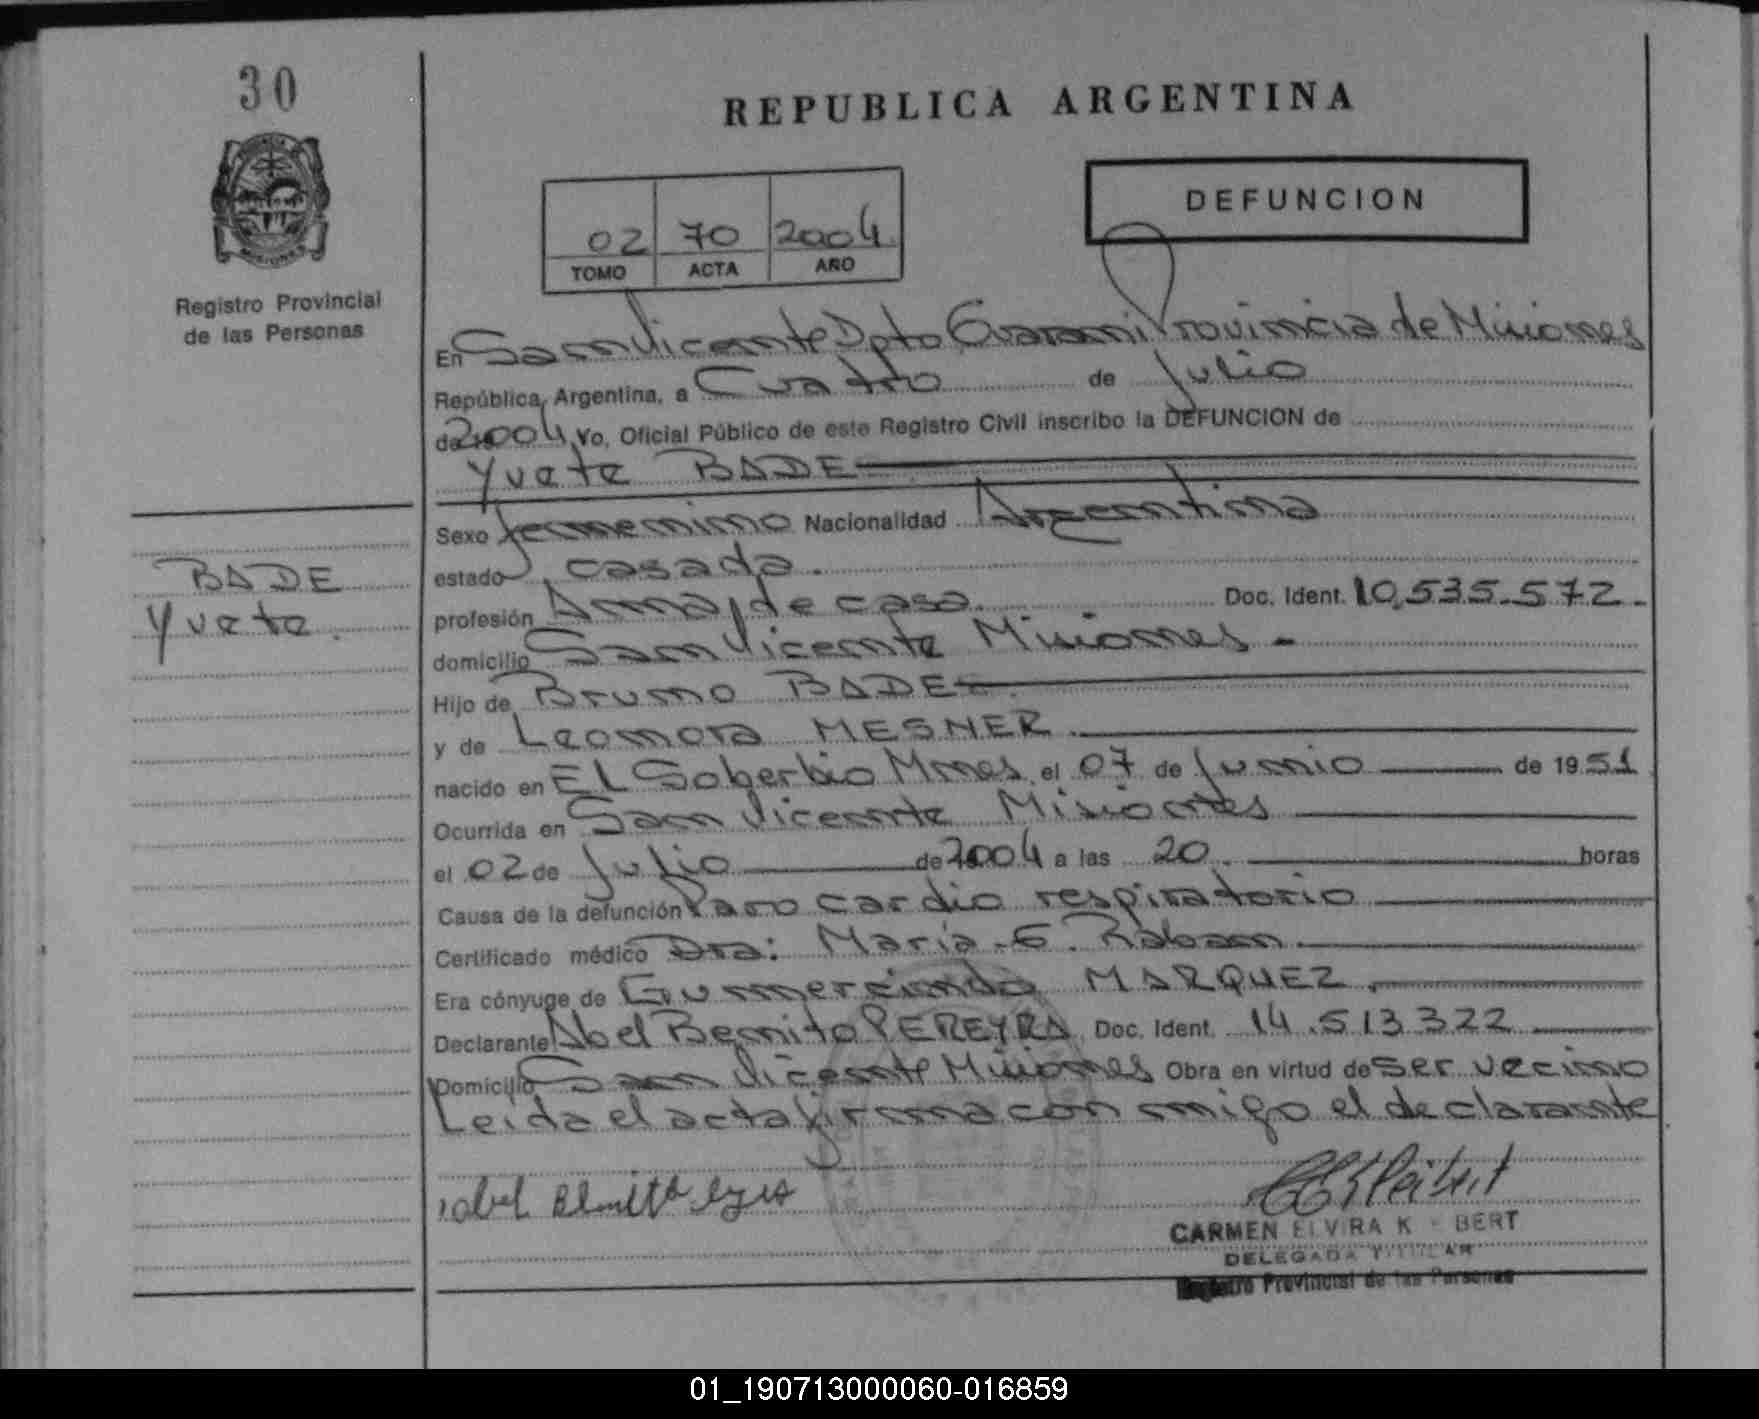 30
REPUBLICA ARGENTINA
DEFUNCION
02 70 2004
TOMO ACTA AÑO
MISIONES
Registro Provincial
de las Personas
En San Vicente Dpto Guarani Provincia de Misiones
República Argentina, a Cuatro de Julio
de 2004 Yo, Oficial Público de este Registro Civil inscribo la DEFUNCION de
Yvete BADE
Sexo femenino Nacionalidad Argentina
estado casada.
profesión Ama de casa. Doc. Ident. 10.535.572.-
domicilio San Vicente Misiones -
Hijo de Bruno BADE
y de Leonora MESNER.
nacido en El Soberbio Mnes. el 07 de Junio de 1951
Ocurrida en San Vicente Misiones
el 02 de Julio de 2004 a las 20. horas
Causa de la defunción Paro cardio respiratorio
Certificado médico Dra: Maria E. Raban.
Era cónyuge de Gumercindo MARQUEZ.
Declarante Abel Bennito PEREYRA Doc. Ident. 14.513322
Domicilio San Vicente Misiones Obra en virtud de ser vecino
Leida el acta firma con migo el declarante
BADE
Yvete.
CARMEN ELVIRA K BERT
DELEGADA TITULAR
Registro Provincial de las Personas
01_190713000060-016859